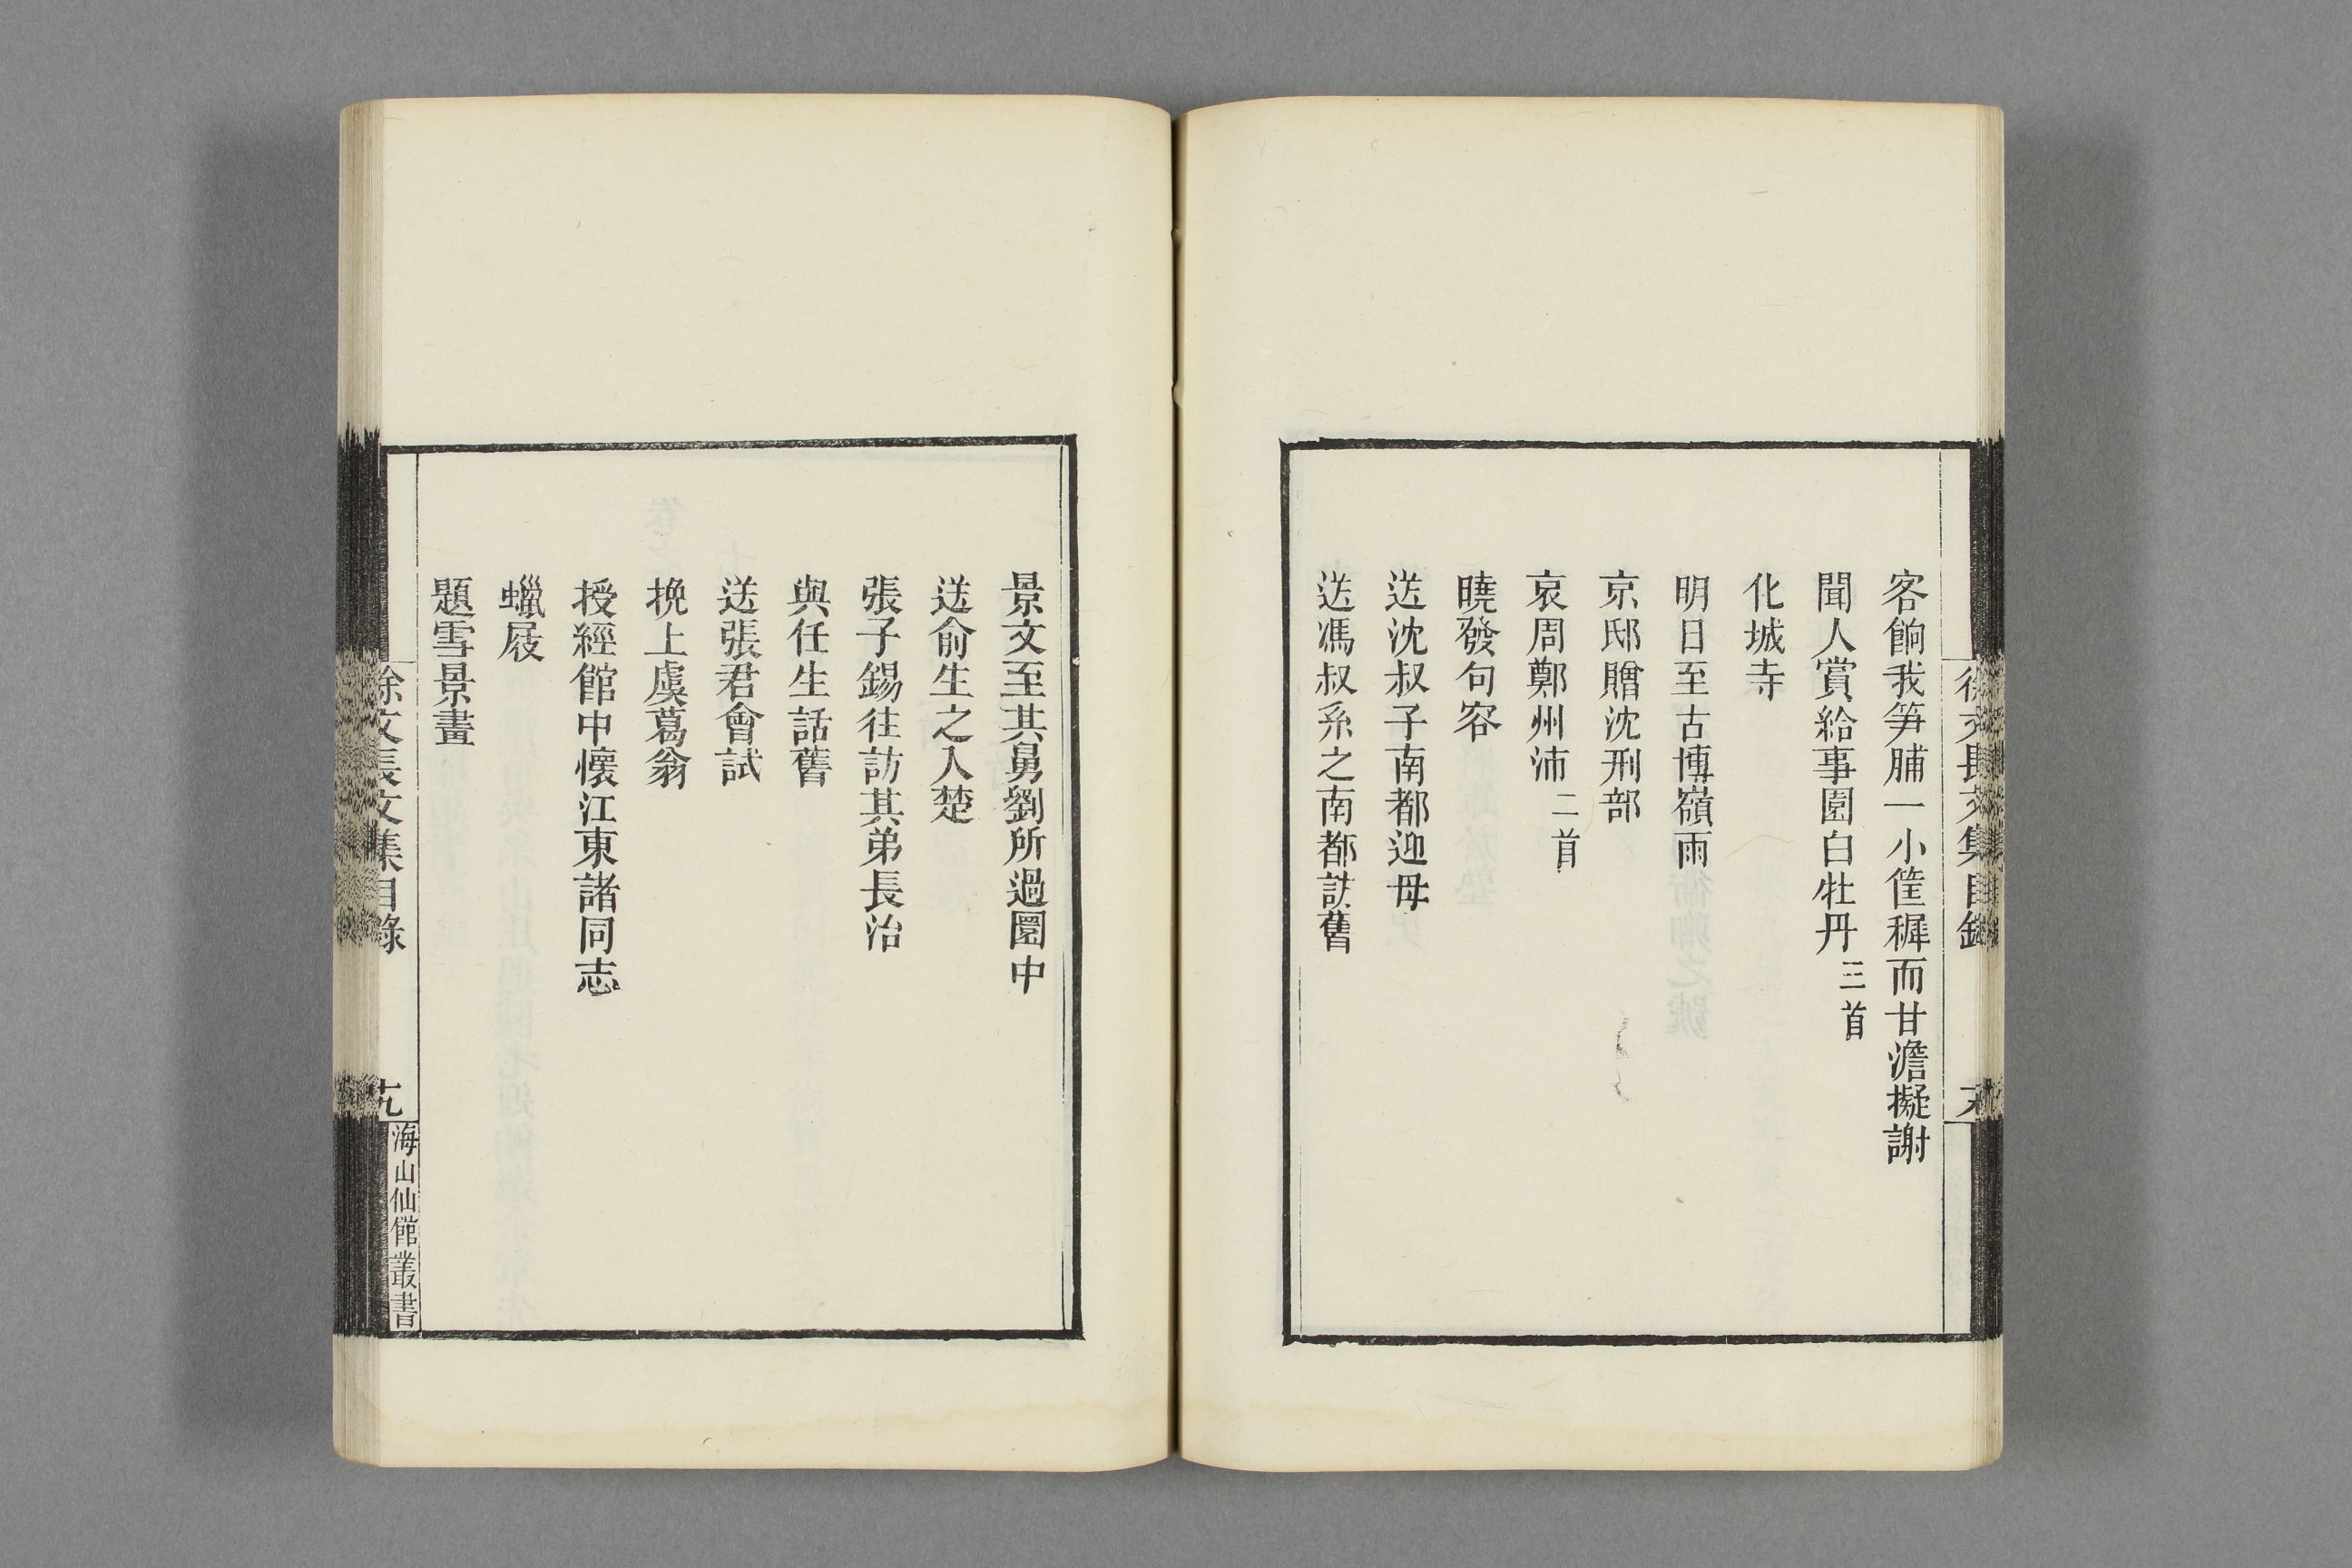 客餉我笋脯一小筐穉而甘澹擬謝
聞人賞給事園白牡丹三首
化城寺
明日至古博嶺雨
京邸贈沈刑部
哀周鄭州沛二首
曉發句容
送沈叔子南都迎母
送馮叔系之南都訪舊
景文至其舅劉所過圜中
送俞生之入楚
張子錫往訪其弟長治
與任生話舊
送張君會試
挽上虞葛翁
授經館中懷江東諸同志
蠟屐
題雪景畫
徐文長文集目錄
十九
海山仙館叢書